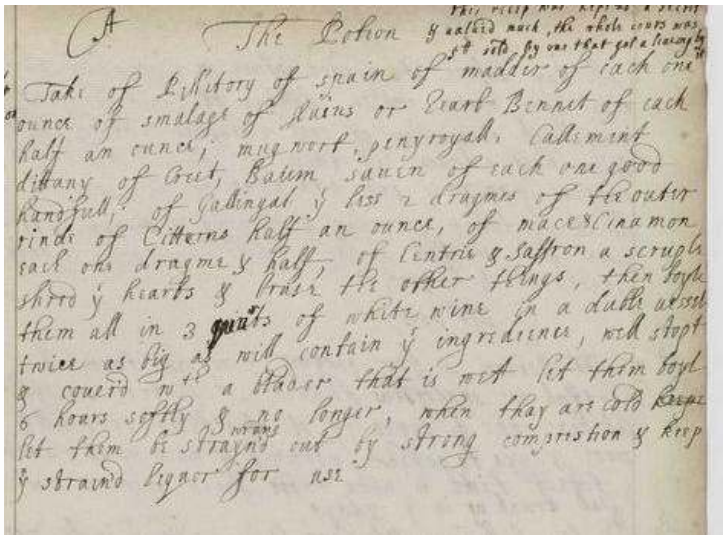 A The Potion
this receip was kept as a secret
& valued much, the whole cours was
sold by one that got a liveing by it
Take of Pillitory of spain of madder of each one
ounce of smalage of Auens or hearb Bennet of each
half an ounce; mugwort, penyroyall, Callement
dittany of Creet, Baum sauen of each one good
handfull; of Gallingal ÿ less 2 dragmes of the outer
rinds of Citterns half an ounce, of mace & Cinamon
each one dragme & half, of Centrie & Saffron a scruple
shred ÿ hearbs & bruse the other things, then boyle
them all in 3 quarts of white wine in a duble vessel
twice as big as will contain ÿ ingredience, well stopt
& couer'd wth a blader that is wet let them boyl
6 hours softly & no longer, when thay are cold
let them be straynd out by strong comprestion & keep
wrung
ÿ straind liquor for use